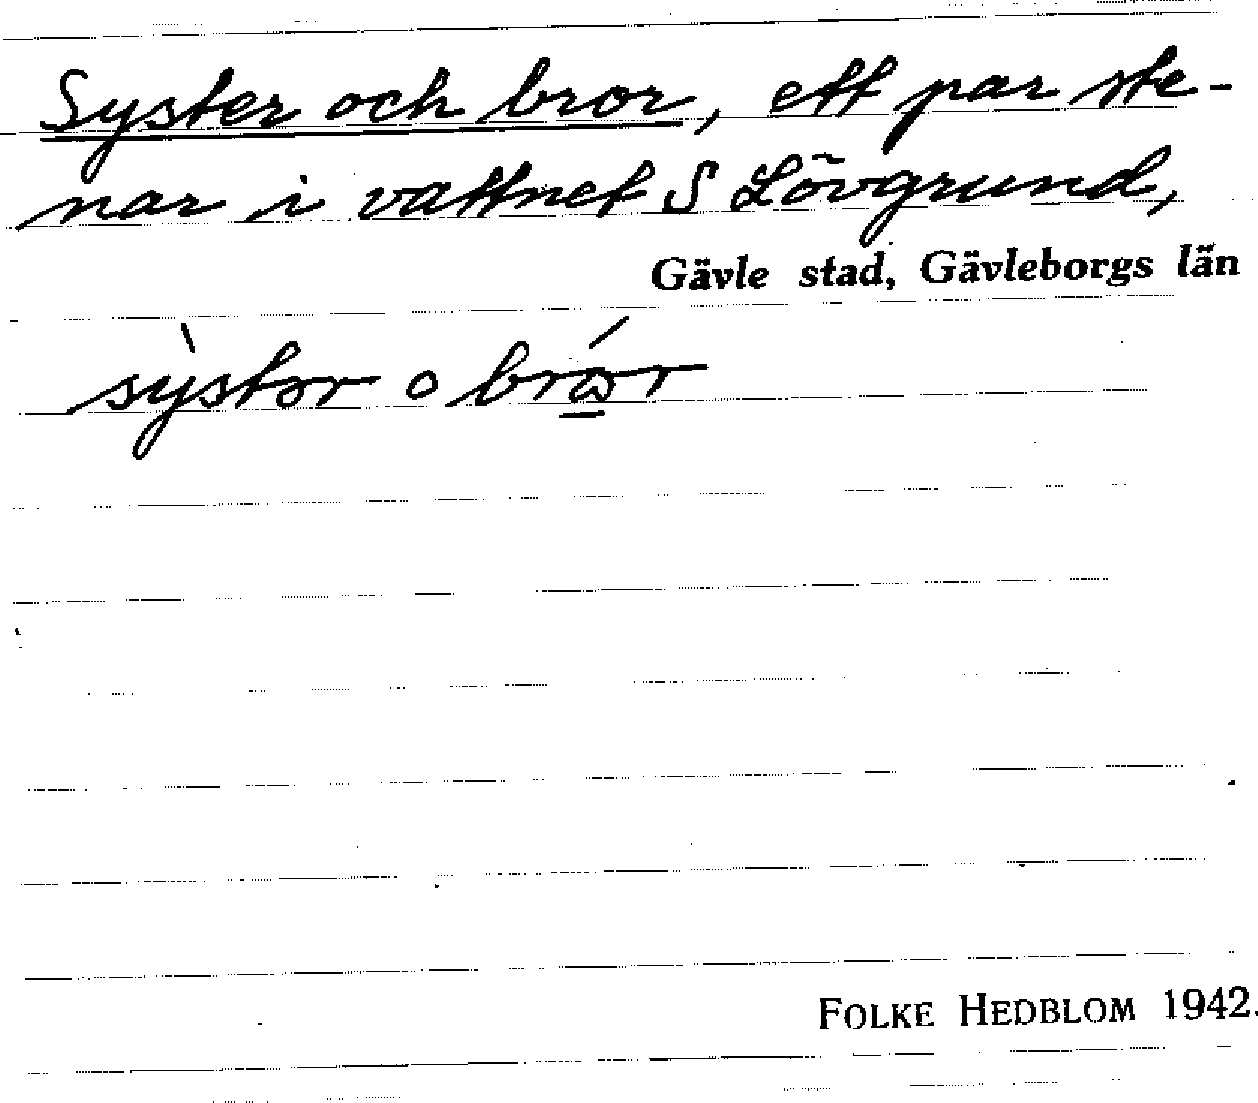 Syster och bror, ett par ste-
nar i vattnet S Lövgrund,
Gävle stad, Gävleborgs län
sỳstər o brɷ́r
FOLKE HEDBLOM 1942.